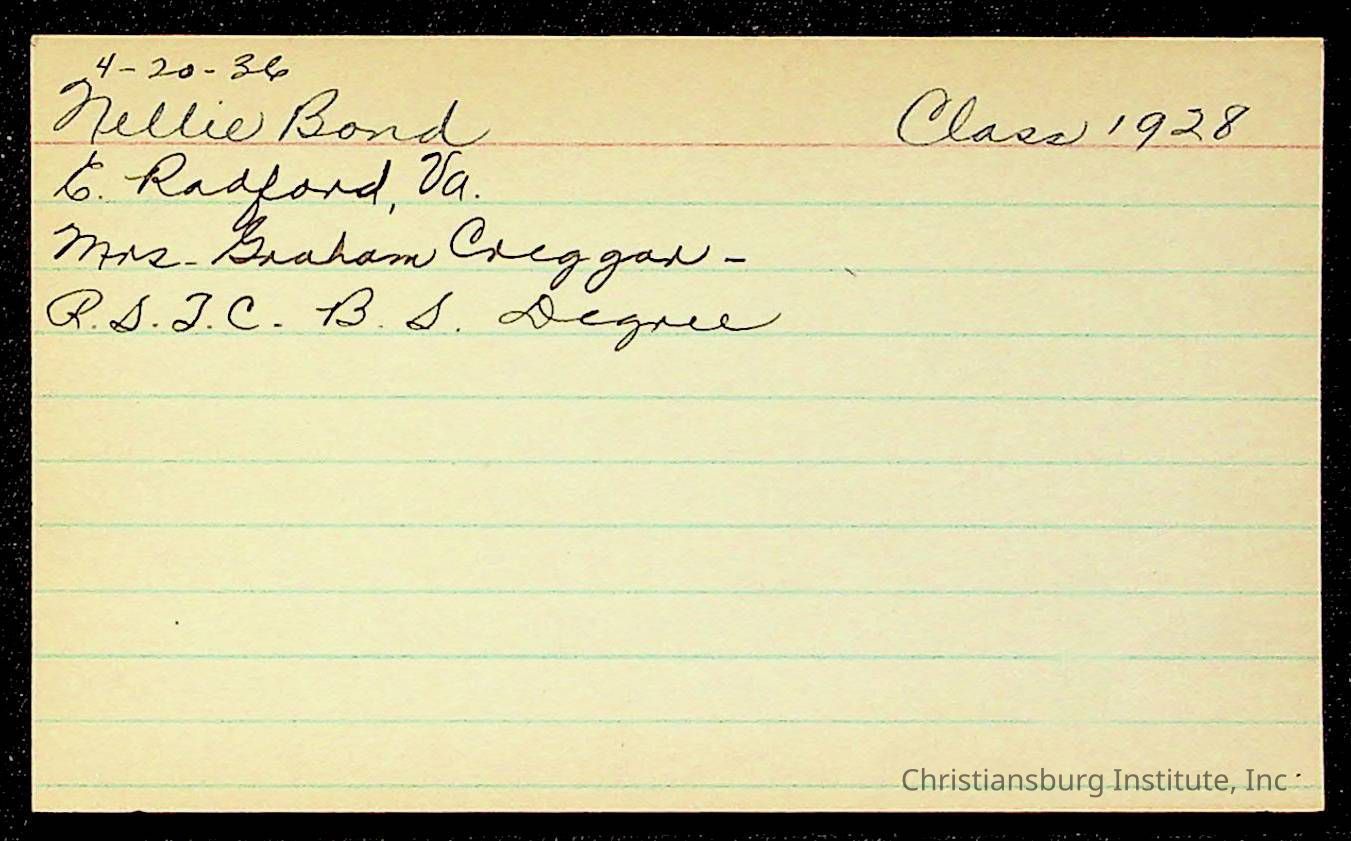 4-20-36
Nellie Bond Class 1928
E. Radford, Va.
Mrs. Graham Creggar -
P.S.T.C. B.S. Degree
Christiansburg Institute, Inc